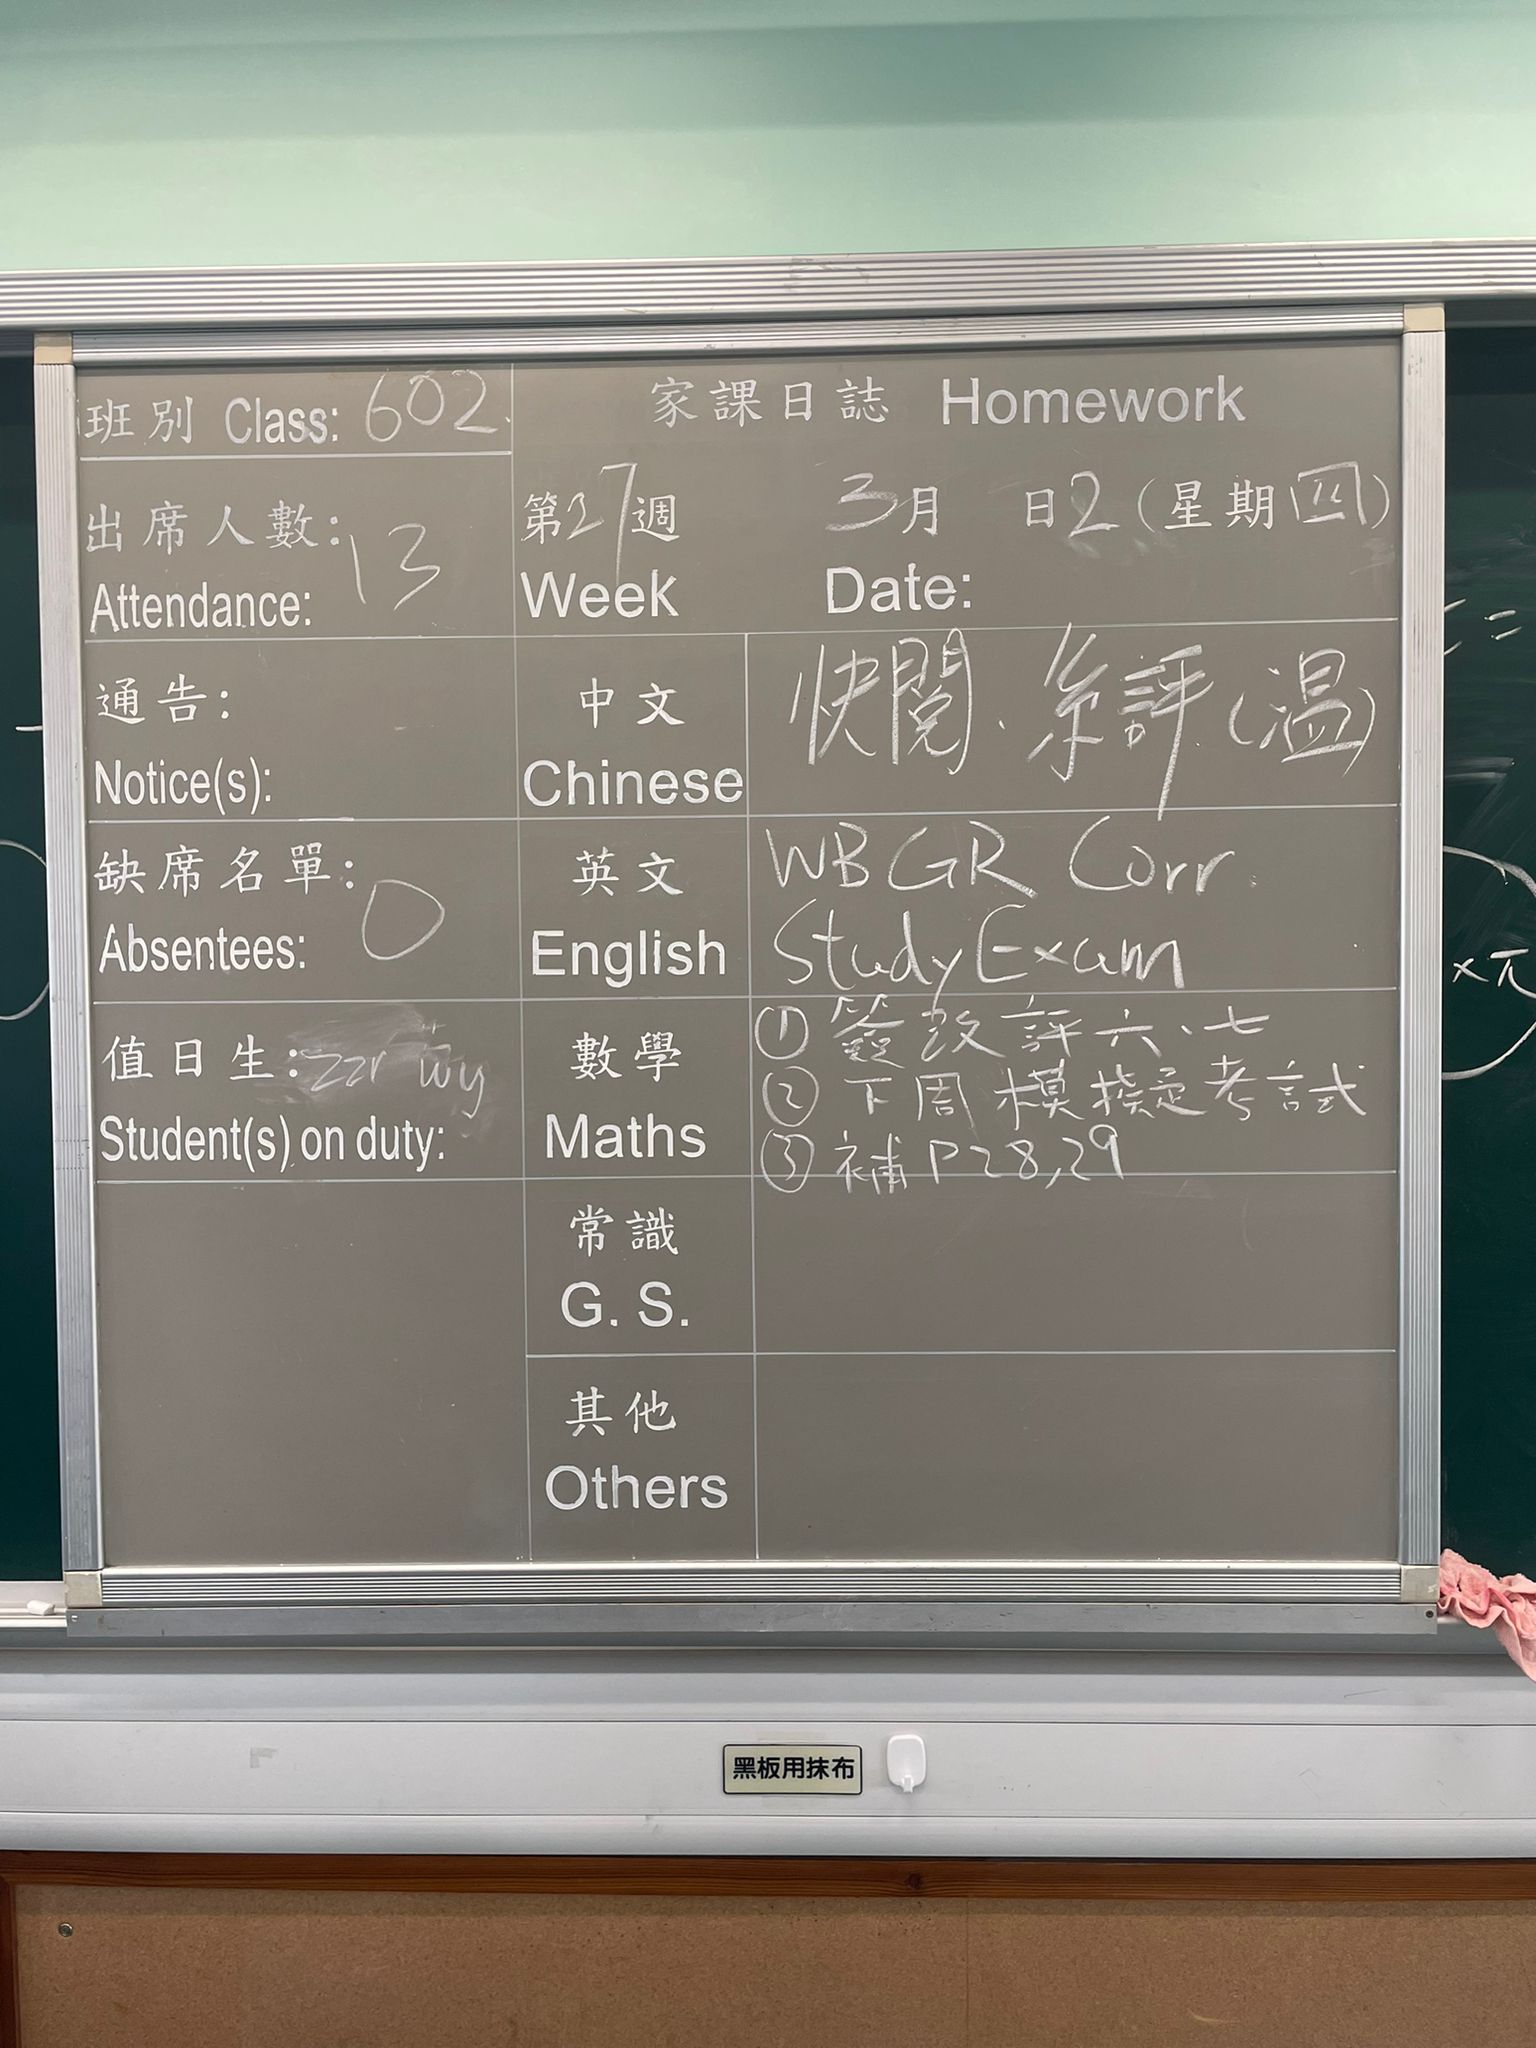 班別 Class: 602
家課日誌 Homework
出席人數: 13
Attendance:
第27週 3月 日2(星期四)
Week Date:
通告:
Notice(s):
中文 快閱、糸評(温)
Chinese
缺席名單: 0
Absentees:
英文 WB GR Corr.
English Study Exam
值日生: zzr wy
Student(s) on duty:
數學 ① 簽改評六、七
Maths ② 下周模擬考試
③ 補P28,29
常識
G. S.
其他
Others
黑板用抹布